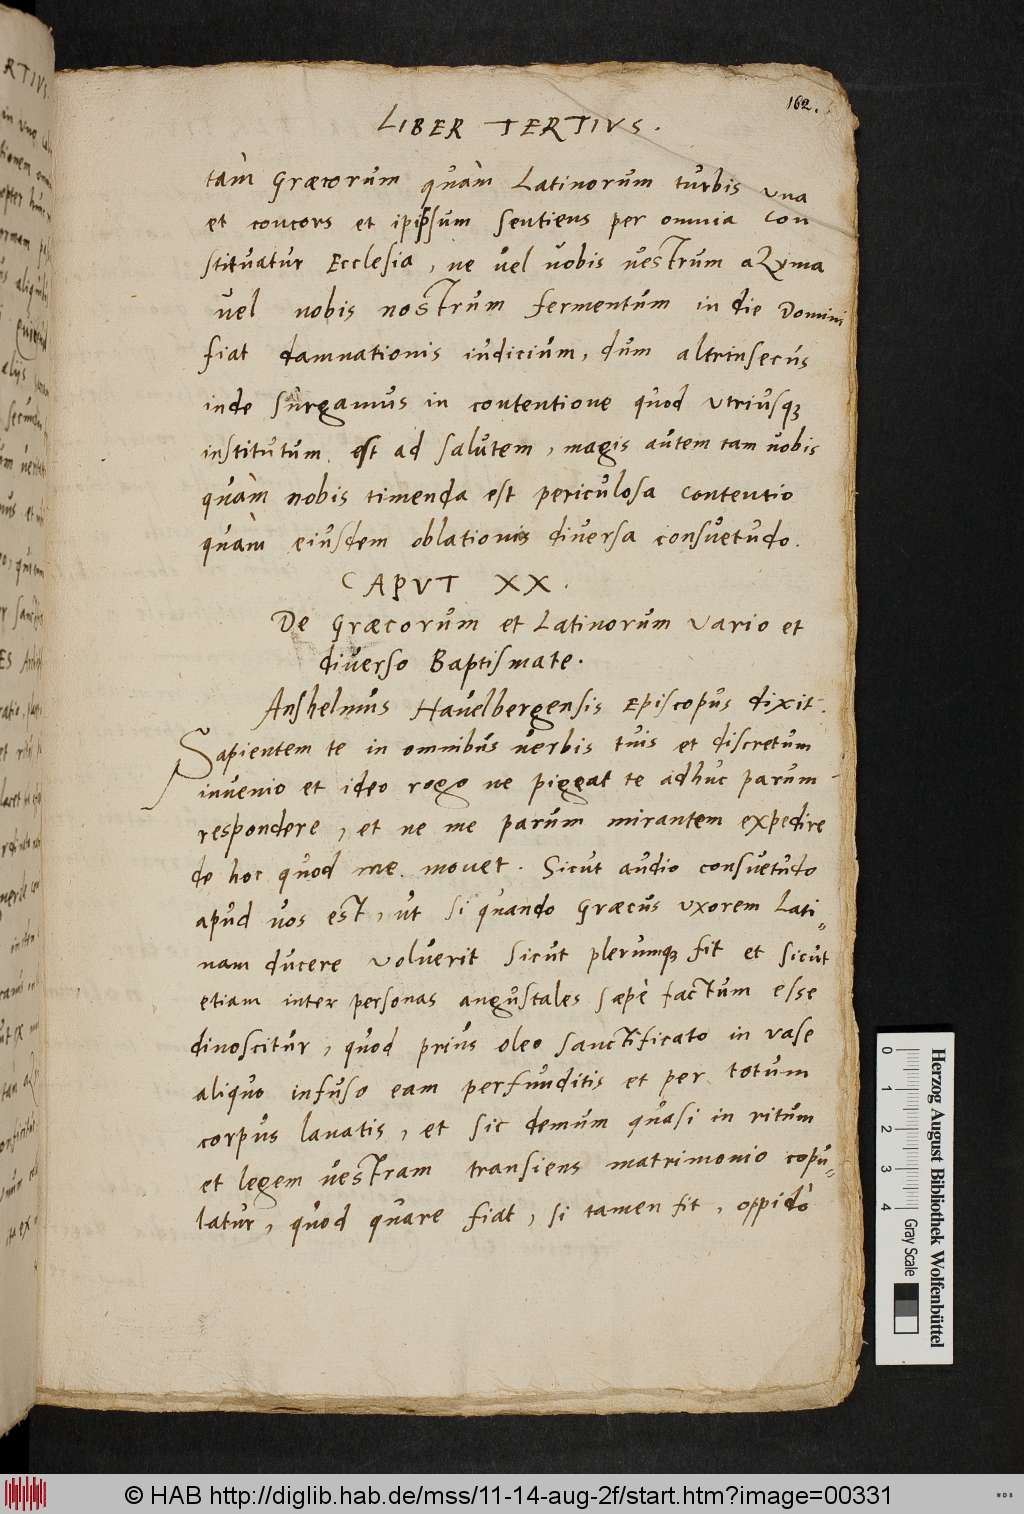 162.
LIBER TERTIVS.
tàm Græcorum quàm Latinorum turbis una
et concors et ipipsum sentiens per omnia con
stituatur Ecclesia, ne vel vobis vestrum azyma
vel nobis nostrum fermentum in die Domini
fiat damnationis iudicium, dum altrinsecus
inde surgamus in contentione quod vtriusq;
institutum est ad salutem, magis autem tam vobis
quàm nobis timenda est periculosa contentio
quàm eiusdem oblationis diversa consuetudo.
CAPVT XX.
De Græcorum et Latinorum vario et
diverso Baptismate.
Anshelmus Havelbergensis Episcopus dixit.
Sapientem te in omnibus verbis tuis et discretum
invenio et ideo rogo ne piggat te adhuc parum
respondere, et ne me parum mirantem expedire
de hoc quod me movet. Sicut audio consuetudo
apud vos est, ut si quando Græcus vxorem Lati=
nam ducere voluerit sicut plerumq; fit et sicut
etiam inter personas angustales sæpè factum esse
dinoscitur, quod prius oleo sanctificato in vase
aliquo infuso eam perfunditis et per totum
corpus lavatis, et sic demum quasi in ritum
et legem vestram transiens matrimonio copu=
latur, quod quare fiat, si tamen fit, oppidò
Herzog August Bibliothek Wolfenbüttel
0 1 2 3 4 Gray Scale
© HAB http://diglib.hab.de/mss/11-14-aug-2f/start.htm?image=00331